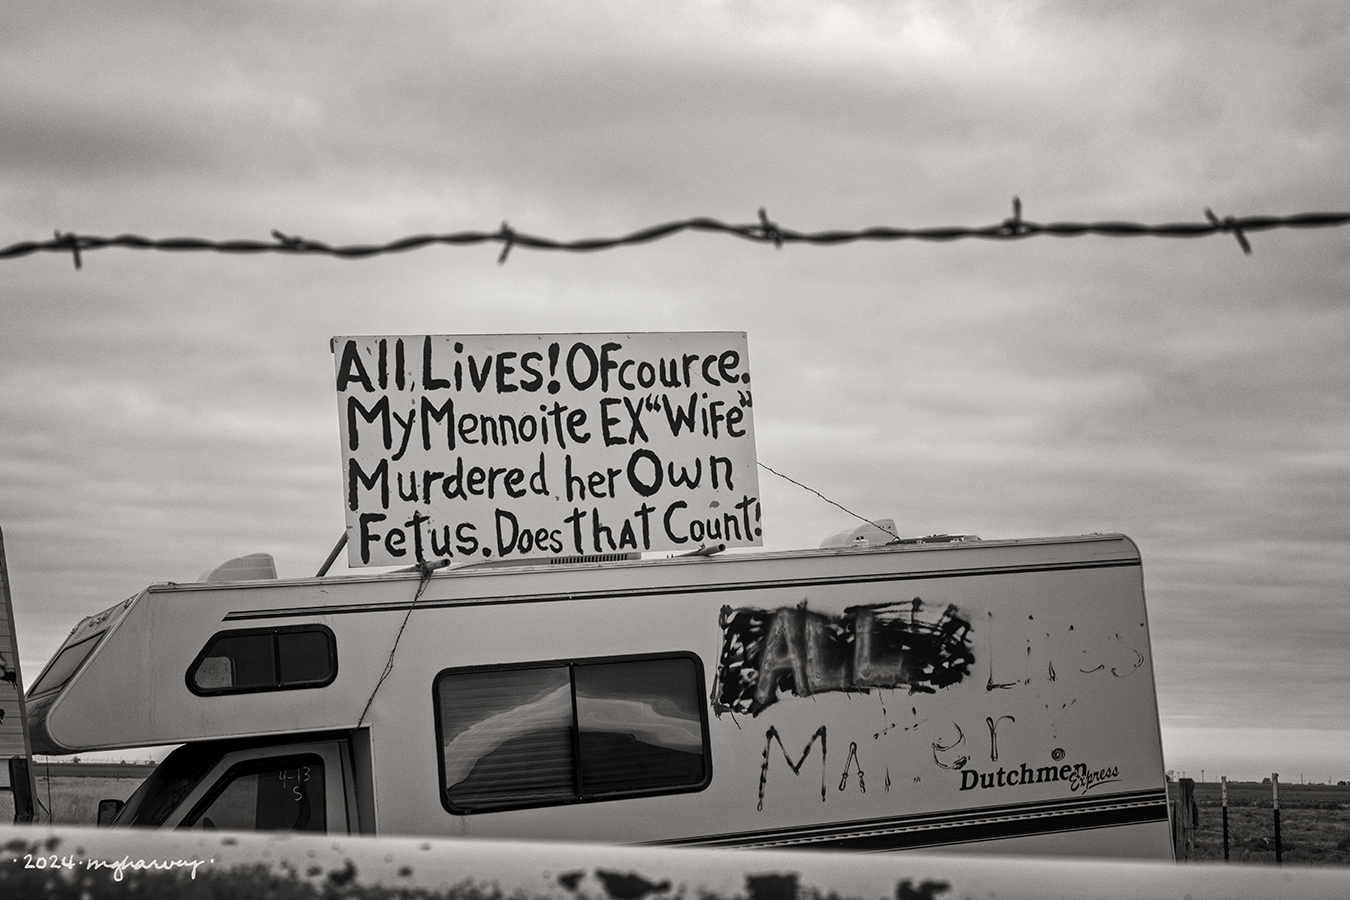 All Lives! OFcource.
My Mennoite EX "Wife"
Murdered her Own
Fetus. Does that Count!
ALL Lives
Matter
Dutchmen
Express
4-13
S
·2024·mgharvey·